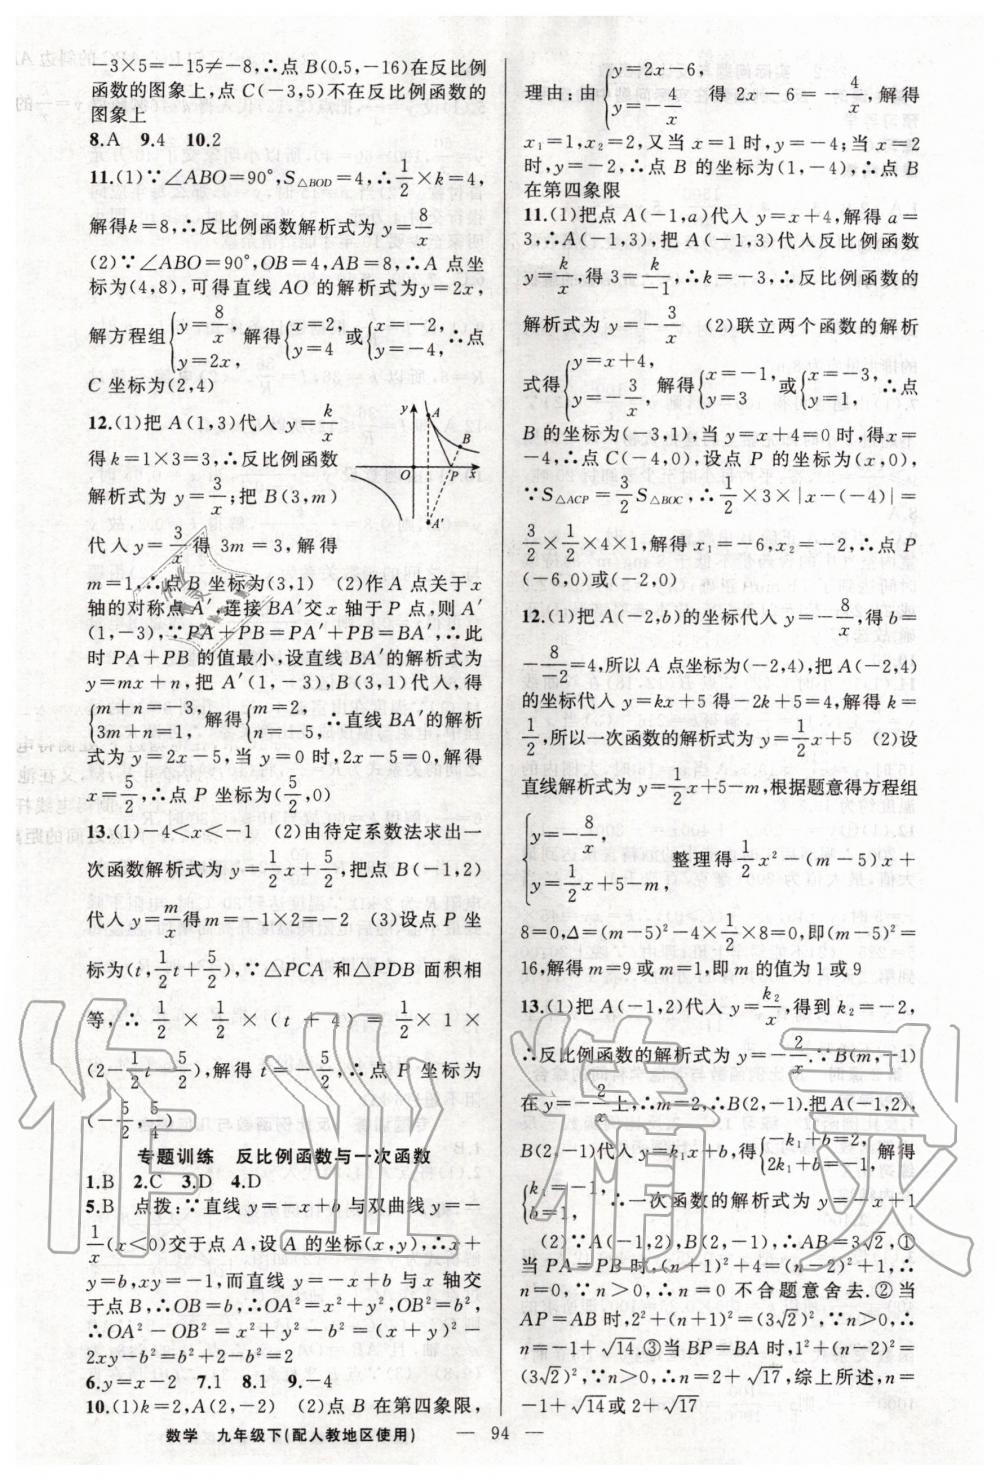 −3×5=−15≠−8,∴点 B(0.5,−16)在反比例
函数的图象上,点 C(−3,5)不在反比例函数的
图象上
8.A 9.4 10.2
11.(1)∵∠ABO=90°,S△BOD=4,∴1/2×k=4,
解得k=8,∴反比例函数解析式为 y=8/x
(2)∵∠ABO=90°,OB=4,AB=8,∴A 点坐
标为(4,8),可得直线 AO 的解析式为y=2x,
解方程组{y=8/x, y=2x, 解得{x=2, y=4 或{x=−2, y=−4, ∴点
C 坐标为(2,4)
12.(1)把 A(1,3)代入 y=k/x
得 k=1×3=3,∴反比例函数
解析式为 y=3/x;把 B(3,m)
代入 y=3/x得 3m=3,解得
m=1,∴点 B 坐标为(3,1) (2)作 A 点关于 x
轴的对称点 A′,连接 BA′交 x 轴于 P 点,则 A′
(1,−3),∵PA+PB=PA′+PB=BA′,∴此
时 PA+PB 的值最小,设直线 BA′的解析式为
y=mx+n,把 A′(1,−3),B(3,1)代入,得
{m+n=−3, 3m+n=1, 解得{m=2, n=−5, ∴直线 BA′的解析
式为 y=2x−5,当 y=0 时,2x−5=0,解得
x=5/2,∴点 P 坐标为(5/2,0)
y A B O P x A′
13.(1)−4<x<−1 (2)由待定系数法求出一
次函数解析式为 y=1/2x+5/2,把点 B(−1,2)
代入 y=m/x得 m=−1×2=−2 (3)设点 P 坐
标为(t,1/2t+5/2),∵△PCA 和△PDB 面积相
等,∴1/2×1/2×(t+4)=1/2×1×
(2−1/2t−5/2),解得 t=−5/2,∴点 P 坐标为
(−5/2,5/4)
专题训练 反比例函数与一次函数
1.B 2.C 3.D 4.D
5.B 点拨:∵直线 y=−x+b 与双曲线 y=−
1/x(x<0)交于点 A,设 A 的坐标(x,y),∴x+
y=b,xy=−1,而直线 y=−x+b 与 x 轴交
于点 B,∴OB=b,∴OA²=x²+y²,OB²=b²,
∴OA²−OB²=x²+y²−b²=(x+y)²−
2xy−b²=b²+2−b²=2
6.y=x−2 7.1 8.1 9.−4
10.(1)k=2,A(2,−2) (2)点 B 在第四象限,
理由:由{y=2x−6, y=−4/x 得 2x−6=−4/x,解得
x1=1,x2=2,又当 x=1 时,y=−4;当 x=2
时,y=−2,∴点 B 的坐标为(1,−4),∴点 B
在第四象限
11.(1)把点 A(−1,a)代入 y=x+4,解得 a=
3,∴A(−1,3),把 A(−1,3)代入反比例函数
y=k/x,得 3=k/−1,∴k=−3,∴反比例函数的
解析式为 y=−3/x (2)联立两个函数的解析
式得{y=x+4, y=−3/x, 解得{x=−1, y=3 或{x=−3, y=1, ∴点
B 的坐标为(−3,1),当 y=x+4=0 时,得x=
−4,∴点 C(−4,0),设点 P 的坐标为(x,0),
∵S△ACP=3/2S△BOC,∴1/2×3×|x−(−4)|=
3/2×1/2×4×1,解得 x1=−6,x2=−2,∴点 P
(−6,0)或(−2,0)
12.(1)把 A(−2,b)的坐标代入 y=−8/x,得 b=
−8/−2=4,所以 A 点坐标为(−2,4),把 A(−2,4)
的坐标代入 y=kx+5 得−2k+5=4,解得 k=
1/2,所以一次函数的解析式为 y=1/2x+5 (2)设
直线解析式为 y=1/2x+5−m,根据题意得方程组
{y=−8/x, y=1/2x+5−m, 整理得1/2x²−(m−5)x+
8=0,Δ=(m−5)²−4×1/2×8=0,即(m−5)²=
16,解得 m=9 或 m=1,即 m 的值为 1 或9
13.(1)把 A(−1,2)代入 y=k2/x,得到 k2=−2,
∴反比例函数的解析式为 y=−2/x.∵B(m,−1)
在 y=−2/x上,∴m=2,∴B(2,−1).把A(−1,2),
B(2,−1)代入 y=k1x+b,得{−k1+b=2, 2k1+b=−1,
{k1=−1, b=1, ∴一次函数的解析式为 y=−x+1
(2)∵A(−1,2),B(2,−1),∴AB=3√2,①
当 PA=PB 时,(n+1)²+4=(n−2)²+1,∴
n=0,∵n>0,∴n=0 不合题意舍去.②当
AP=AB 时,2²+(n+1)²=(3√2)²,∵n>0,∴
n=−1+√14.③当 BP=BA 时,1²+(n−2)²=
(3√2)²,∵n>0,∴n=2+√17,综上所述,n=
−1+√14或 2+√17
数学 九年级下(配人教地区使用) — 94 —
作业精灵